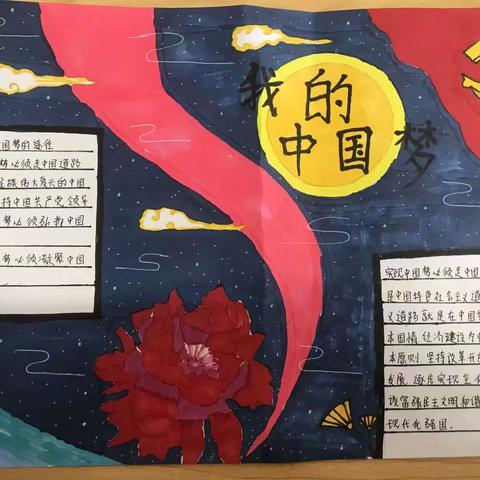 我的
中国梦
国梦的途径
梦必须走中国道路
族伟大复兴的中国
持中国共产党领导
梦必须弘扬中国
梦必须凝聚中国
实现中国梦必须走中国
是中国特色社会主义道
义道路就是在中国
本国情,经济建设为
本原则,坚持改革开
发展,逐步实现全
设富强民主文明和谐
现代化强国.